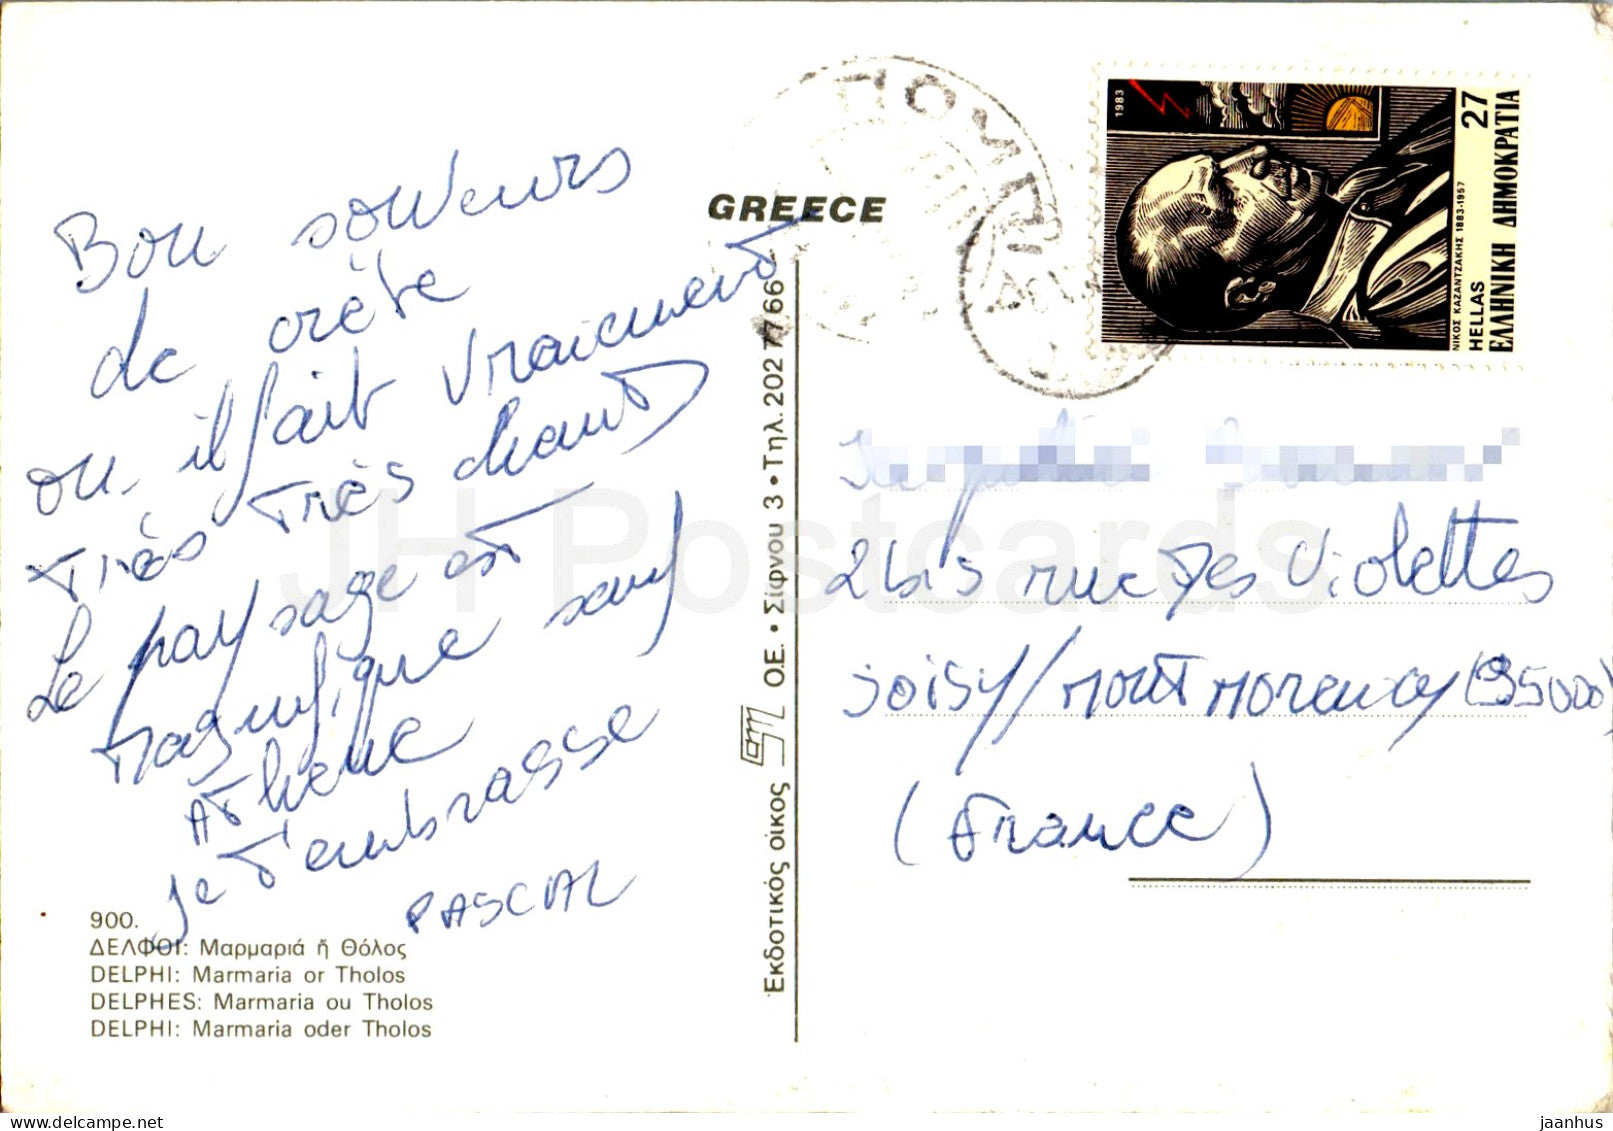 Bon souveurs
de crète
ou il fait vraiement
très très chaud
Le paysage est
magnifique sauf
Athène
je t'embrasse
PASCAL
900.
ΔΕΛΦΟΙ: Μαρμαριά ἤ Θόλος
DELPHI: Marmaria or Tholos
DELPHES: Marmaria ou Tholos
DELPHI: Marmaria oder Tholos
GREECE
Ἐκδοτικός οἶκος
Ο.Ε. • Σίφνου 3 • Τηλ. 202 7766
1983
ΝΙΚΟΣ ΚΑΖΑΝΤΖΑΚΗΣ 1883-1957
HELLAS 27
ΕΛΛΗΝΙΚΗ ΔΗΜΟΚΡΑΤΙΑ
2 bis rue des Violettes
soisy/Montmorency (95000)
(France)
JH Postcards
www.delcampe.net
jaanhus